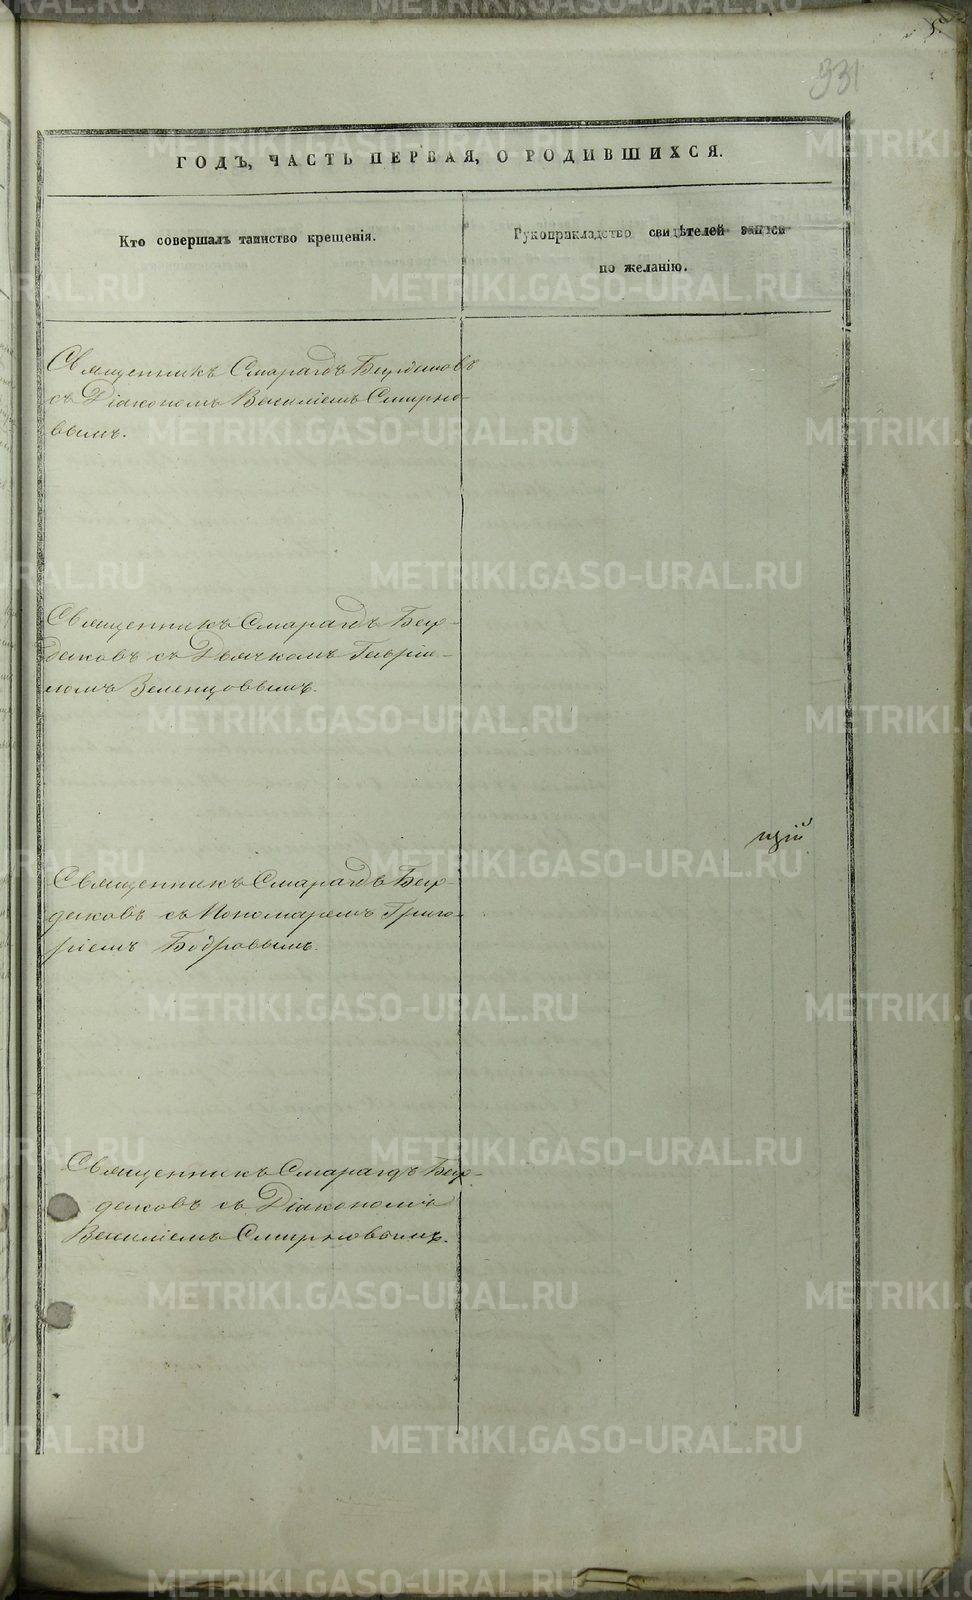 931
ГОДЪ, ЧАСТЬ ПЕРВАЯ, О РОДИВШИХСЯ.
Кто совершалъ таинство крещенія.
Рукоприкладство свидѣтелей записи
по желанію.
Священникъ Смарагдъ Бурдаковъ
съ Діакономъ Василіемъ Смирно-
вымъ.
Священникъ Смарагдъ Бур-
даковъ съ Дьячкомъ Гавріи-
ломъ Зеленцовымъ.
цій
Священникъ Смарагдъ Бур-
даковъ съ Пономаремъ Григо-
ріемъ Бодровымъ.
Священникъ Смарагдъ Бур-
даковъ съ Діакономъ
Василіемъ Смирновымъ.
METRIKI.GASO-URAL.RU